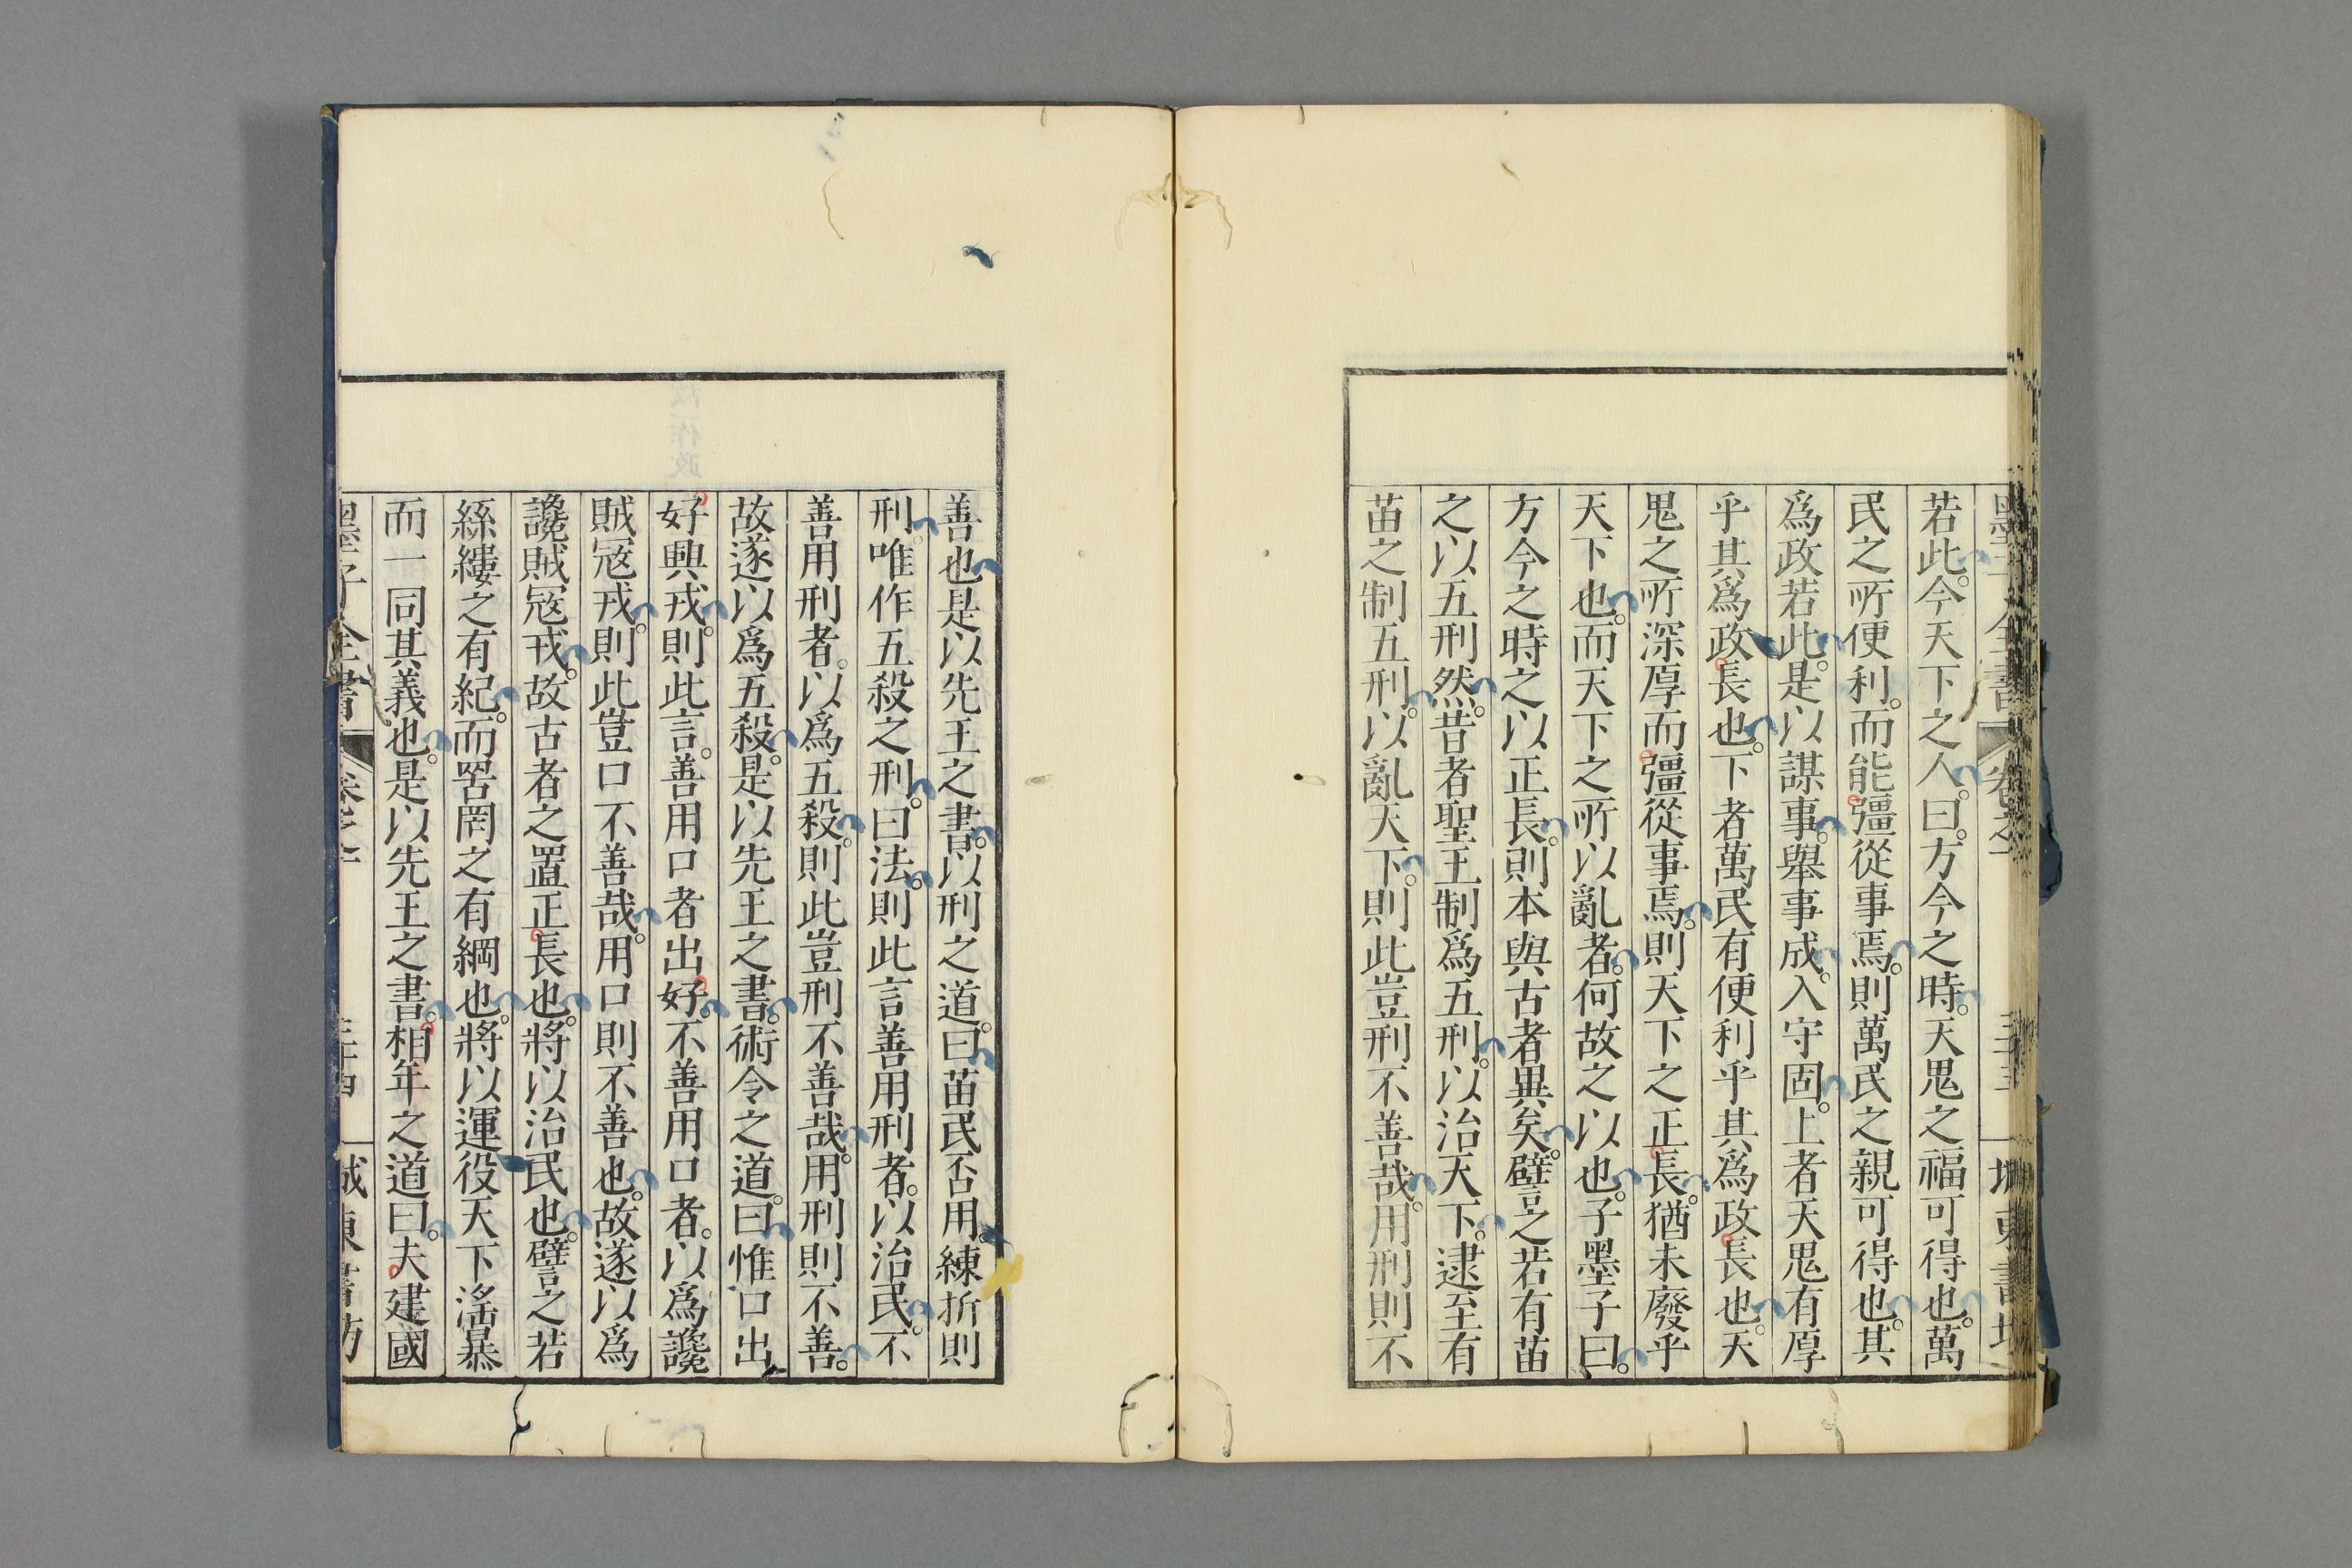 墨子全書 卷之 堂東書坊
若此。今天下之人。曰。方今之時。天鬼之福可得也。萬
民之所便利。而能彊從事焉。則萬民之親可得也。其
爲政若此。是以謀事。舉事成。入守固。上者天鬼有厚
乎其爲政長也。下者萬民有便利乎其爲政長也。天
鬼之所深厚而彊從事焉。則天下之正長。猶未廢乎
天下也。而天下之所以亂者。何故之以也。子墨子曰。
方今之時之以正長。則本與古者異矣。譬之若有苗
之以五刑然。昔者聖王制爲五刑。以治天下。逮至有
苗之制五刑。以亂天下。則此豈刑不善哉。用刑則不
善也是以先王之書。以刑之道。曰苗民否用練折則
刑。唯作五殺之刑。曰法。則此言善用刑者。以治民。不
善用刑者。以爲五殺。則此豈刑不善哉。用刑則不善。
故遂以爲五殺。是以先王之書。術令之道。曰惟口出
好興戎。則此言。善用口者出好。不善用口者。以爲讒
賊寇戎。則此豈口不善哉。用口則不善也。故遂以爲
讒賊寇戎。故古者之置正長也。將以治民也。譬之若
絲縷之有紀。而罟罔之有綱也。將以運役天下淫暴
而一同其義也。是以先王之書。相年之道曰。夫建國
墨子全書 卷之二 三十四 城東書坊